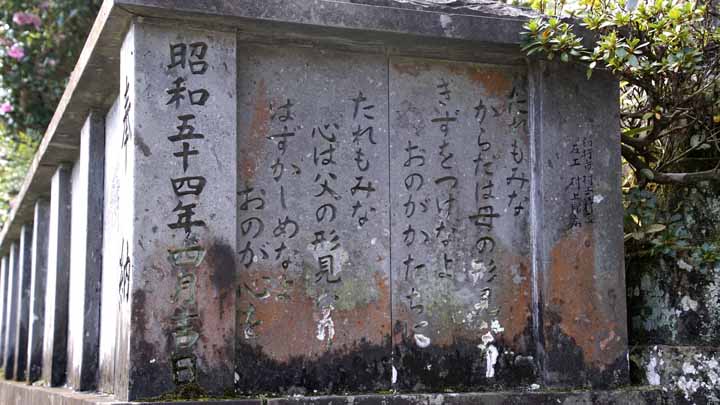 石工 村上
たれもみな
からだは母の形見
きずをつけなよ
おのがかたちに
たれもみな
心は父の形見
はずかしめなよ
おのが心を
昭和五十四年四月吉日
奉納